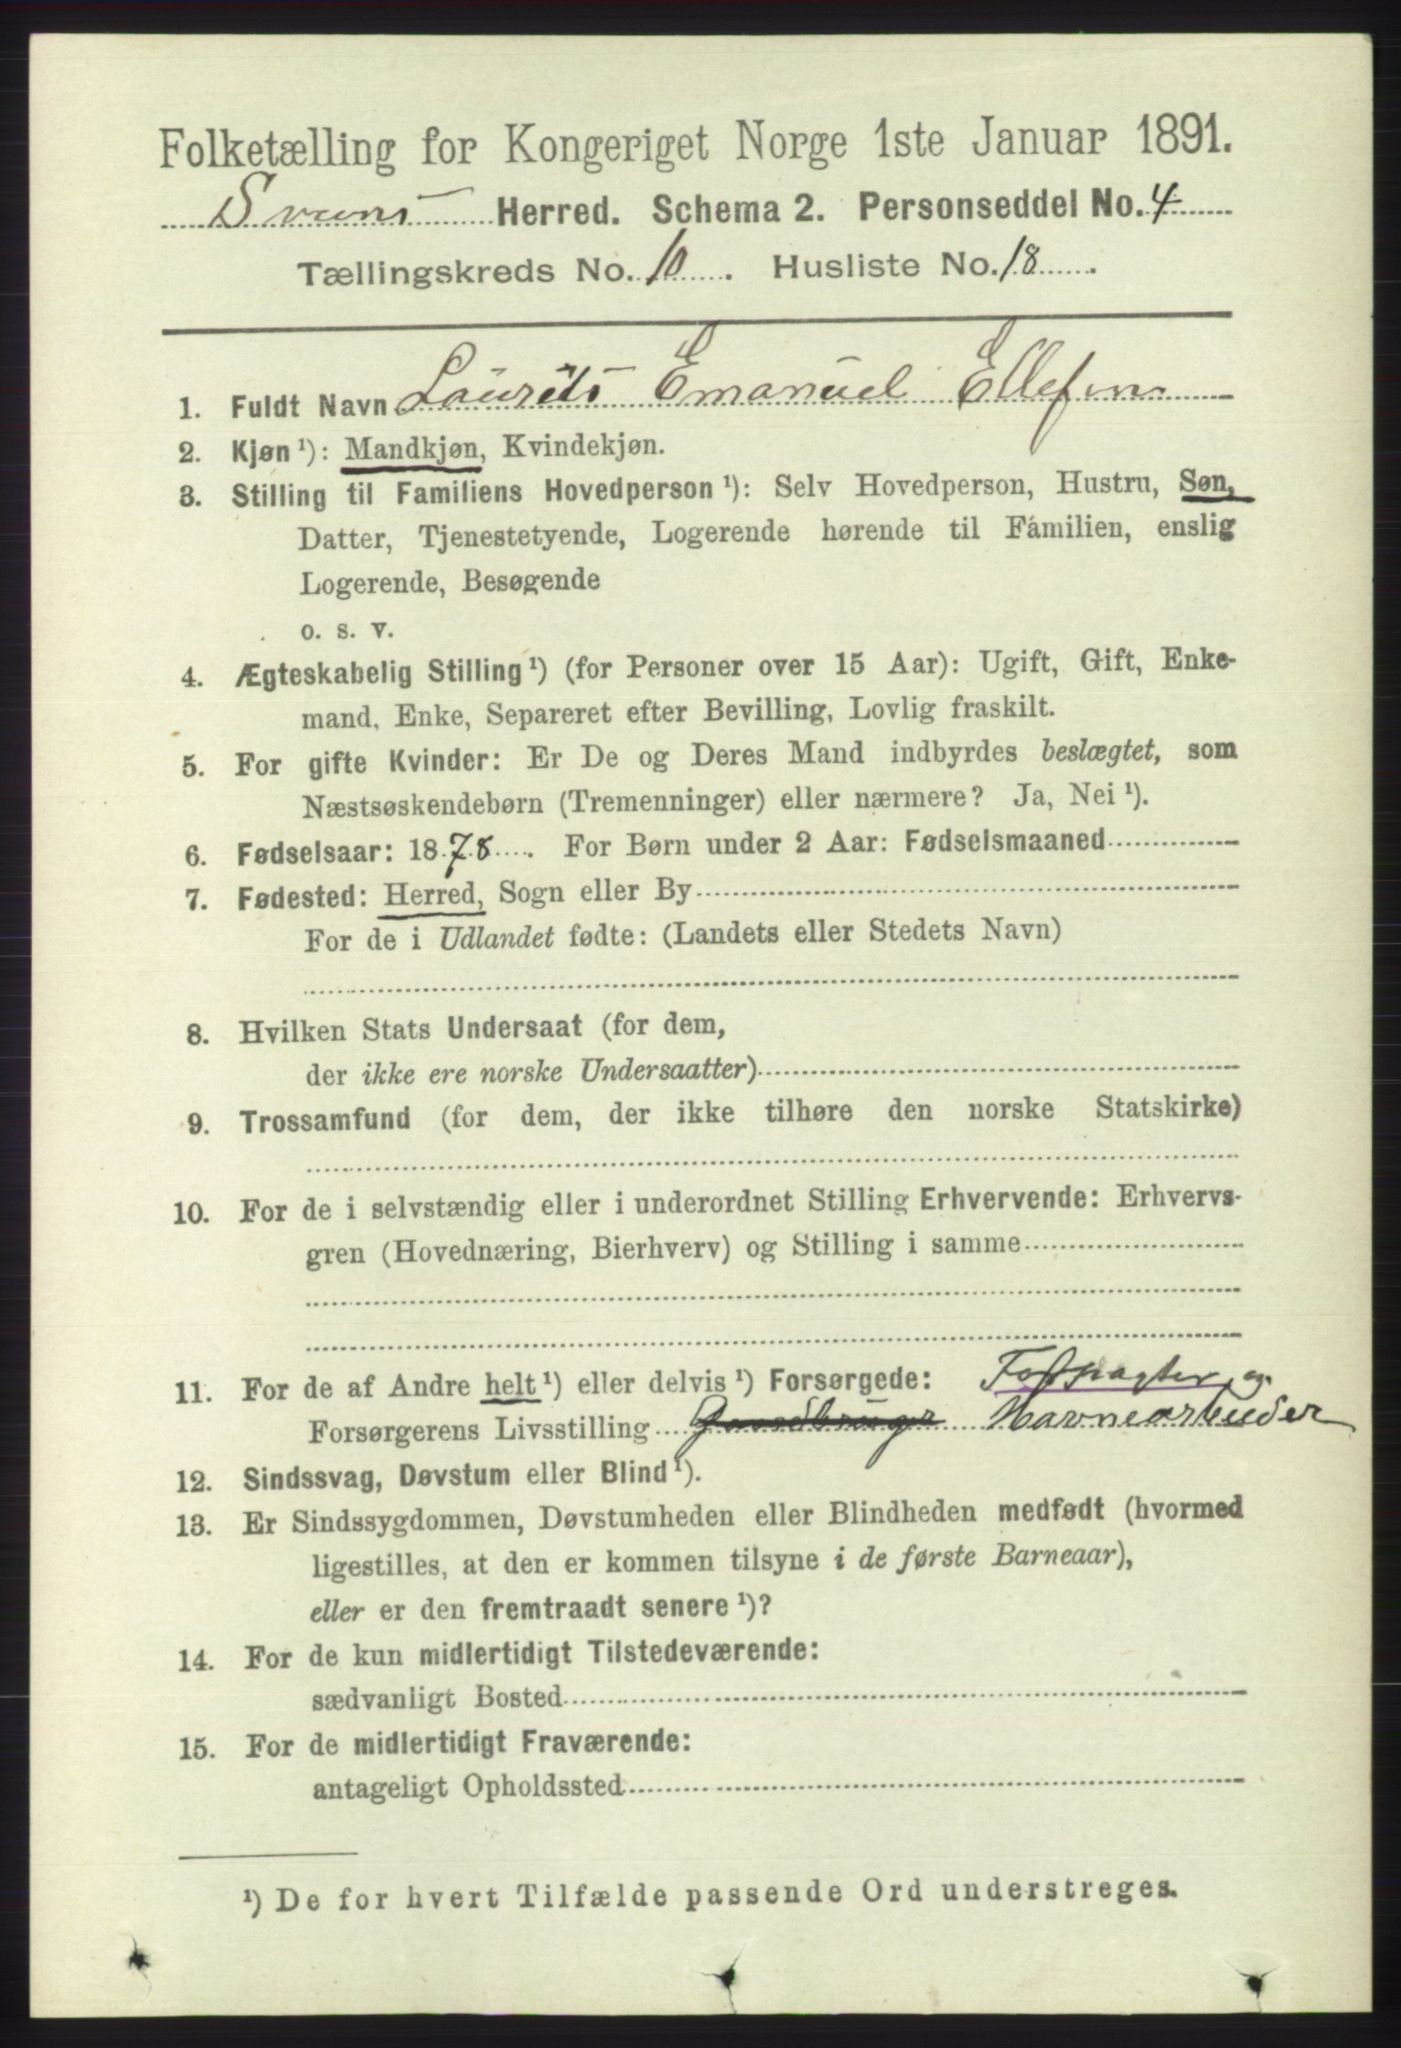 Folketælling for Kongeriget Norge 1ste Januar 1891.
Svums Herred. Schema 2. Personseddel No. 4
Tællingskreds No. 10. Husliste No. 18.
1. Fuldt Navn Laurits Emanuel Ellefsen
2. Kjøn ¹): Mandkjøn, Kvindekjøn.
3. Stilling til Familiens Hovedperson ¹): Selv Hovedperson, Hustru, Søn,
Datter, Tjenestetyende, Logerende hørende til Familien, enslig
Logerende, Besøgende
o. s. v.
4. Ægteskabelig Stilling ¹) (for Personer over 15 Aar): Ugift, Gift, Enke-
mand, Enke, Separeret efter Bevilling, Lovlig fraskilt.
5. For gifte Kvinder: Er De og Deres Mand indbyrdes beslægtet, som
Næstsøskendebørn (Tremenninger) eller nærmere? Ja, Nei ¹).
6. Fødselsaar: 1878. For Børn under 2 Aar: Fødselsmaaned
7. Fødested: Herred, Sogn eller By
For de i Udlandet fødte: (Landets eller Stedets Navn)
8. Hvilken Stats Undersaat (for dem,
der ikke ere norske Undersaatter)
9. Trossamfund (for dem, der ikke tilhøre den norske Statskirke)
10. For de i selvstændig eller i underordnet Stilling Erhvervende: Erhvervs-
gren (Hovednæring, Bierhverv) og Stilling i samme
11. For de af Andre helt ¹) eller delvis ¹) Forsørgede: Forpagter og
Forsørgerens Livsstilling Gaardbruger Havnearbeider
12. Sindssvag, Døvstum eller Blind ¹).
13. Er Sindssygdommen, Døvstumheden eller Blindheden medfødt (hvormed
ligestilles, at den er kommen tilsyne i de første Barneaar),
eller er den fremtraadt senere ¹)?
14. For de kun midlertidigt Tilstedeværende:
sædvanligt Bosted
15. For de midlertidigt Fraværende:
antageligt Opholdssted
¹) De for hvert Tilfælde passende Ord understreges.